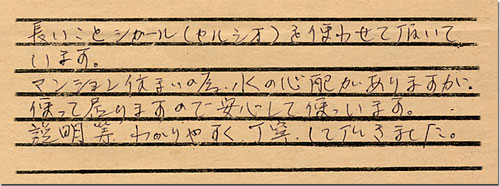 長いことシガール(セルシオ)を使わせて頂いて
います。
マンション住まいの為、水の心配がありますが、
使って居りますので安心して使っています。
説明等 わかりやすく 丁寧にして頂きました。